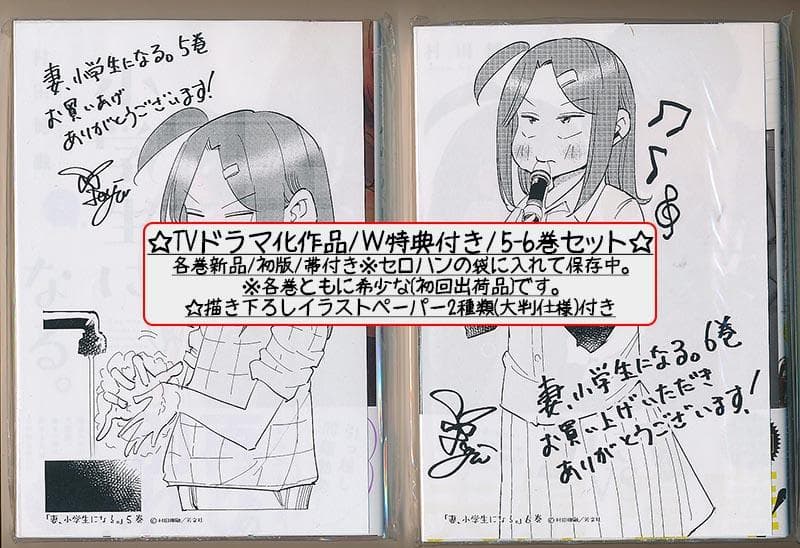 妻、小学生になる。5巻
お買いあげ
ありがとうございます!
☆TVドラマ化作品/W特典付き/5-6巻セット☆
各巻新品/初版/帯付き※セロハンの袋に入れて保存中。
※各巻ともに希少な(初回出荷品)です。
☆描き下ろしイラストペーパー2種類(大判仕様)付き
妻、小学生になる。6巻
お買い上げいただき
ありがとうございます!
『妻、小学生になる。』5巻 ©村田椰融/芳文社
『妻、小学生になる。』6巻 ©村田椰融/芳文社